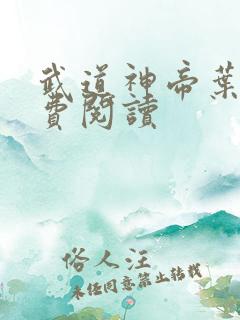 武道神帝葉
費閱讀
俗人汪
未经同意禁止转载